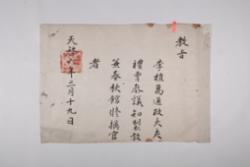 教旨
李植爲通政大夫
禮曹參議知製敎
兼春秋館修撰官
者
天啓六年三月十九日